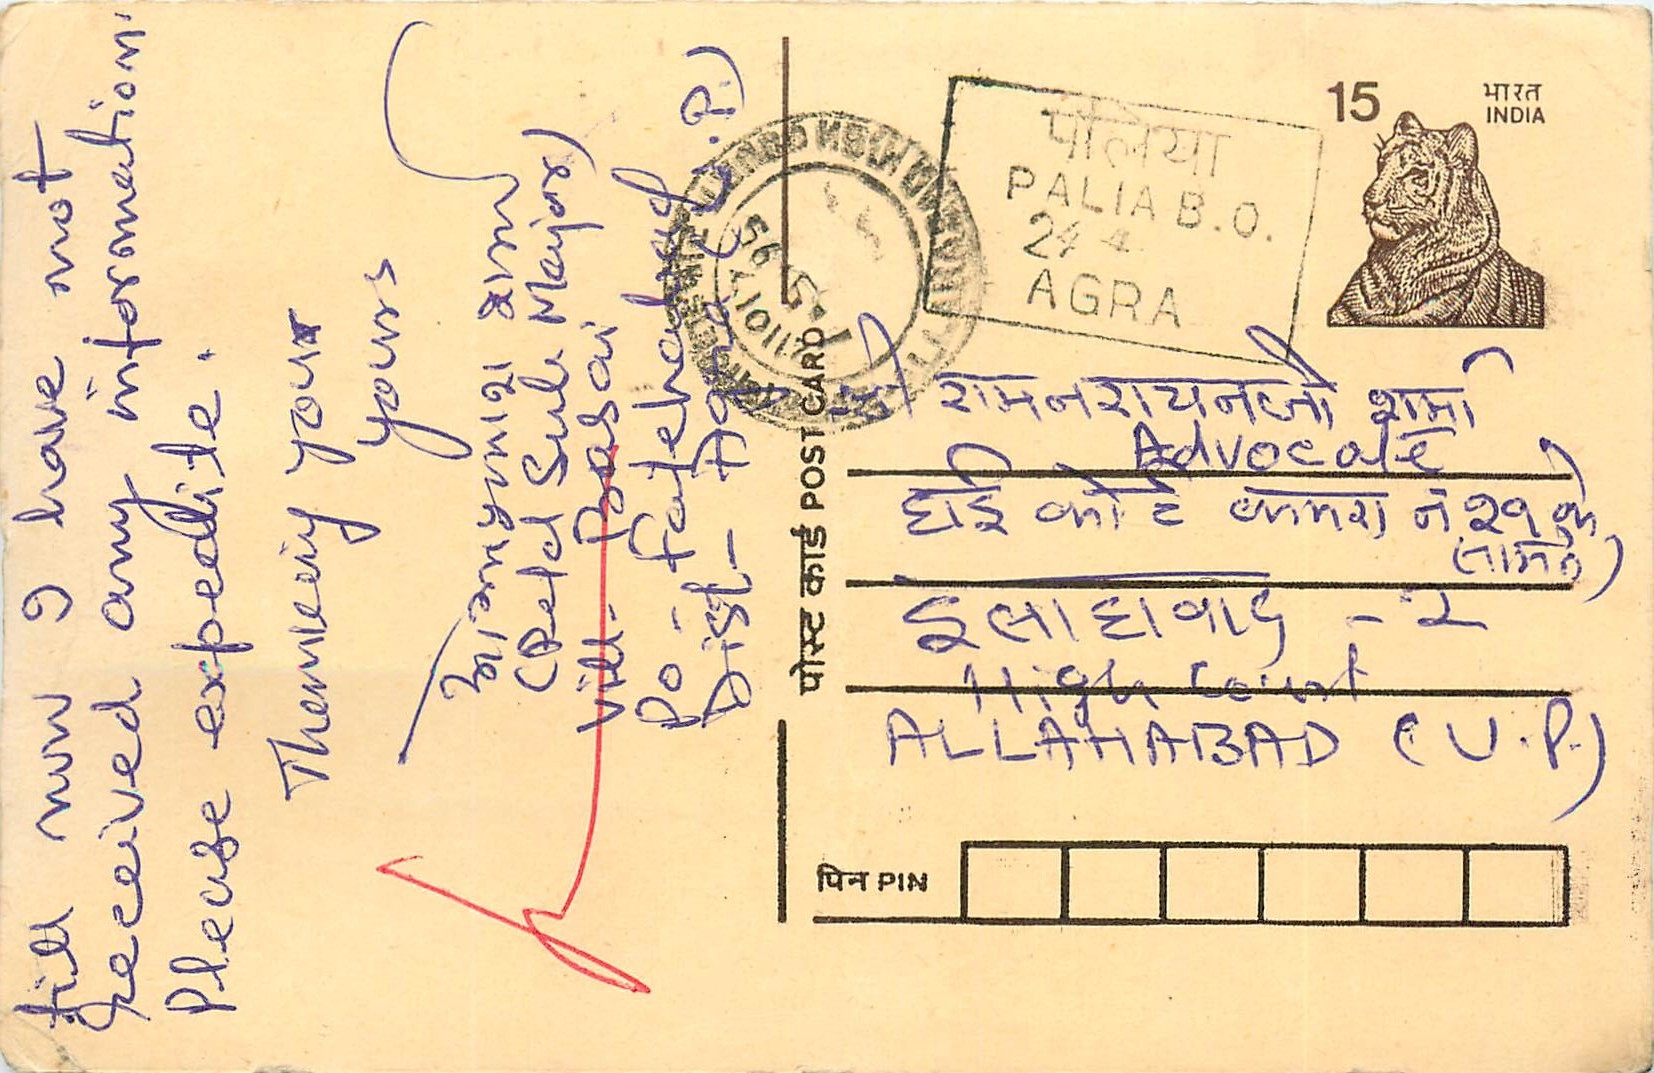 till now I have not
received any information.
Please expedite.
Thanking your
yours
(Retd Sub Major)
Vill- Basai
PO- Fatehabad
Dist- Agra (U.P.)
पोस्ट कार्ड POST CARD
पलिया
PALIA B.O.
24 4
AGRA
15
भारत
INDIA
श्री रामनरायनजी शर्मा
Advocate
हाई कोर्ट कमरा नं
इलाहाबाद - 2
High Court
ALLAHABAD (U.P.)
पिन PIN